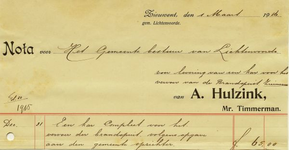 Zieuwent, den 1 Maart 1916
gem. Lichtenvoorde.
Nota voor Het Gemeente bestuur van Lichtenvoorde
een levering van een kar voor het
voeren van de Brandspuit
van A. Hulzink,
Mr. Timmerman.
1915
Dec 31 Een kar Compleet voor het
voeren der brandspuit volgens opgave
aan den gemeente opzichter f 62.00